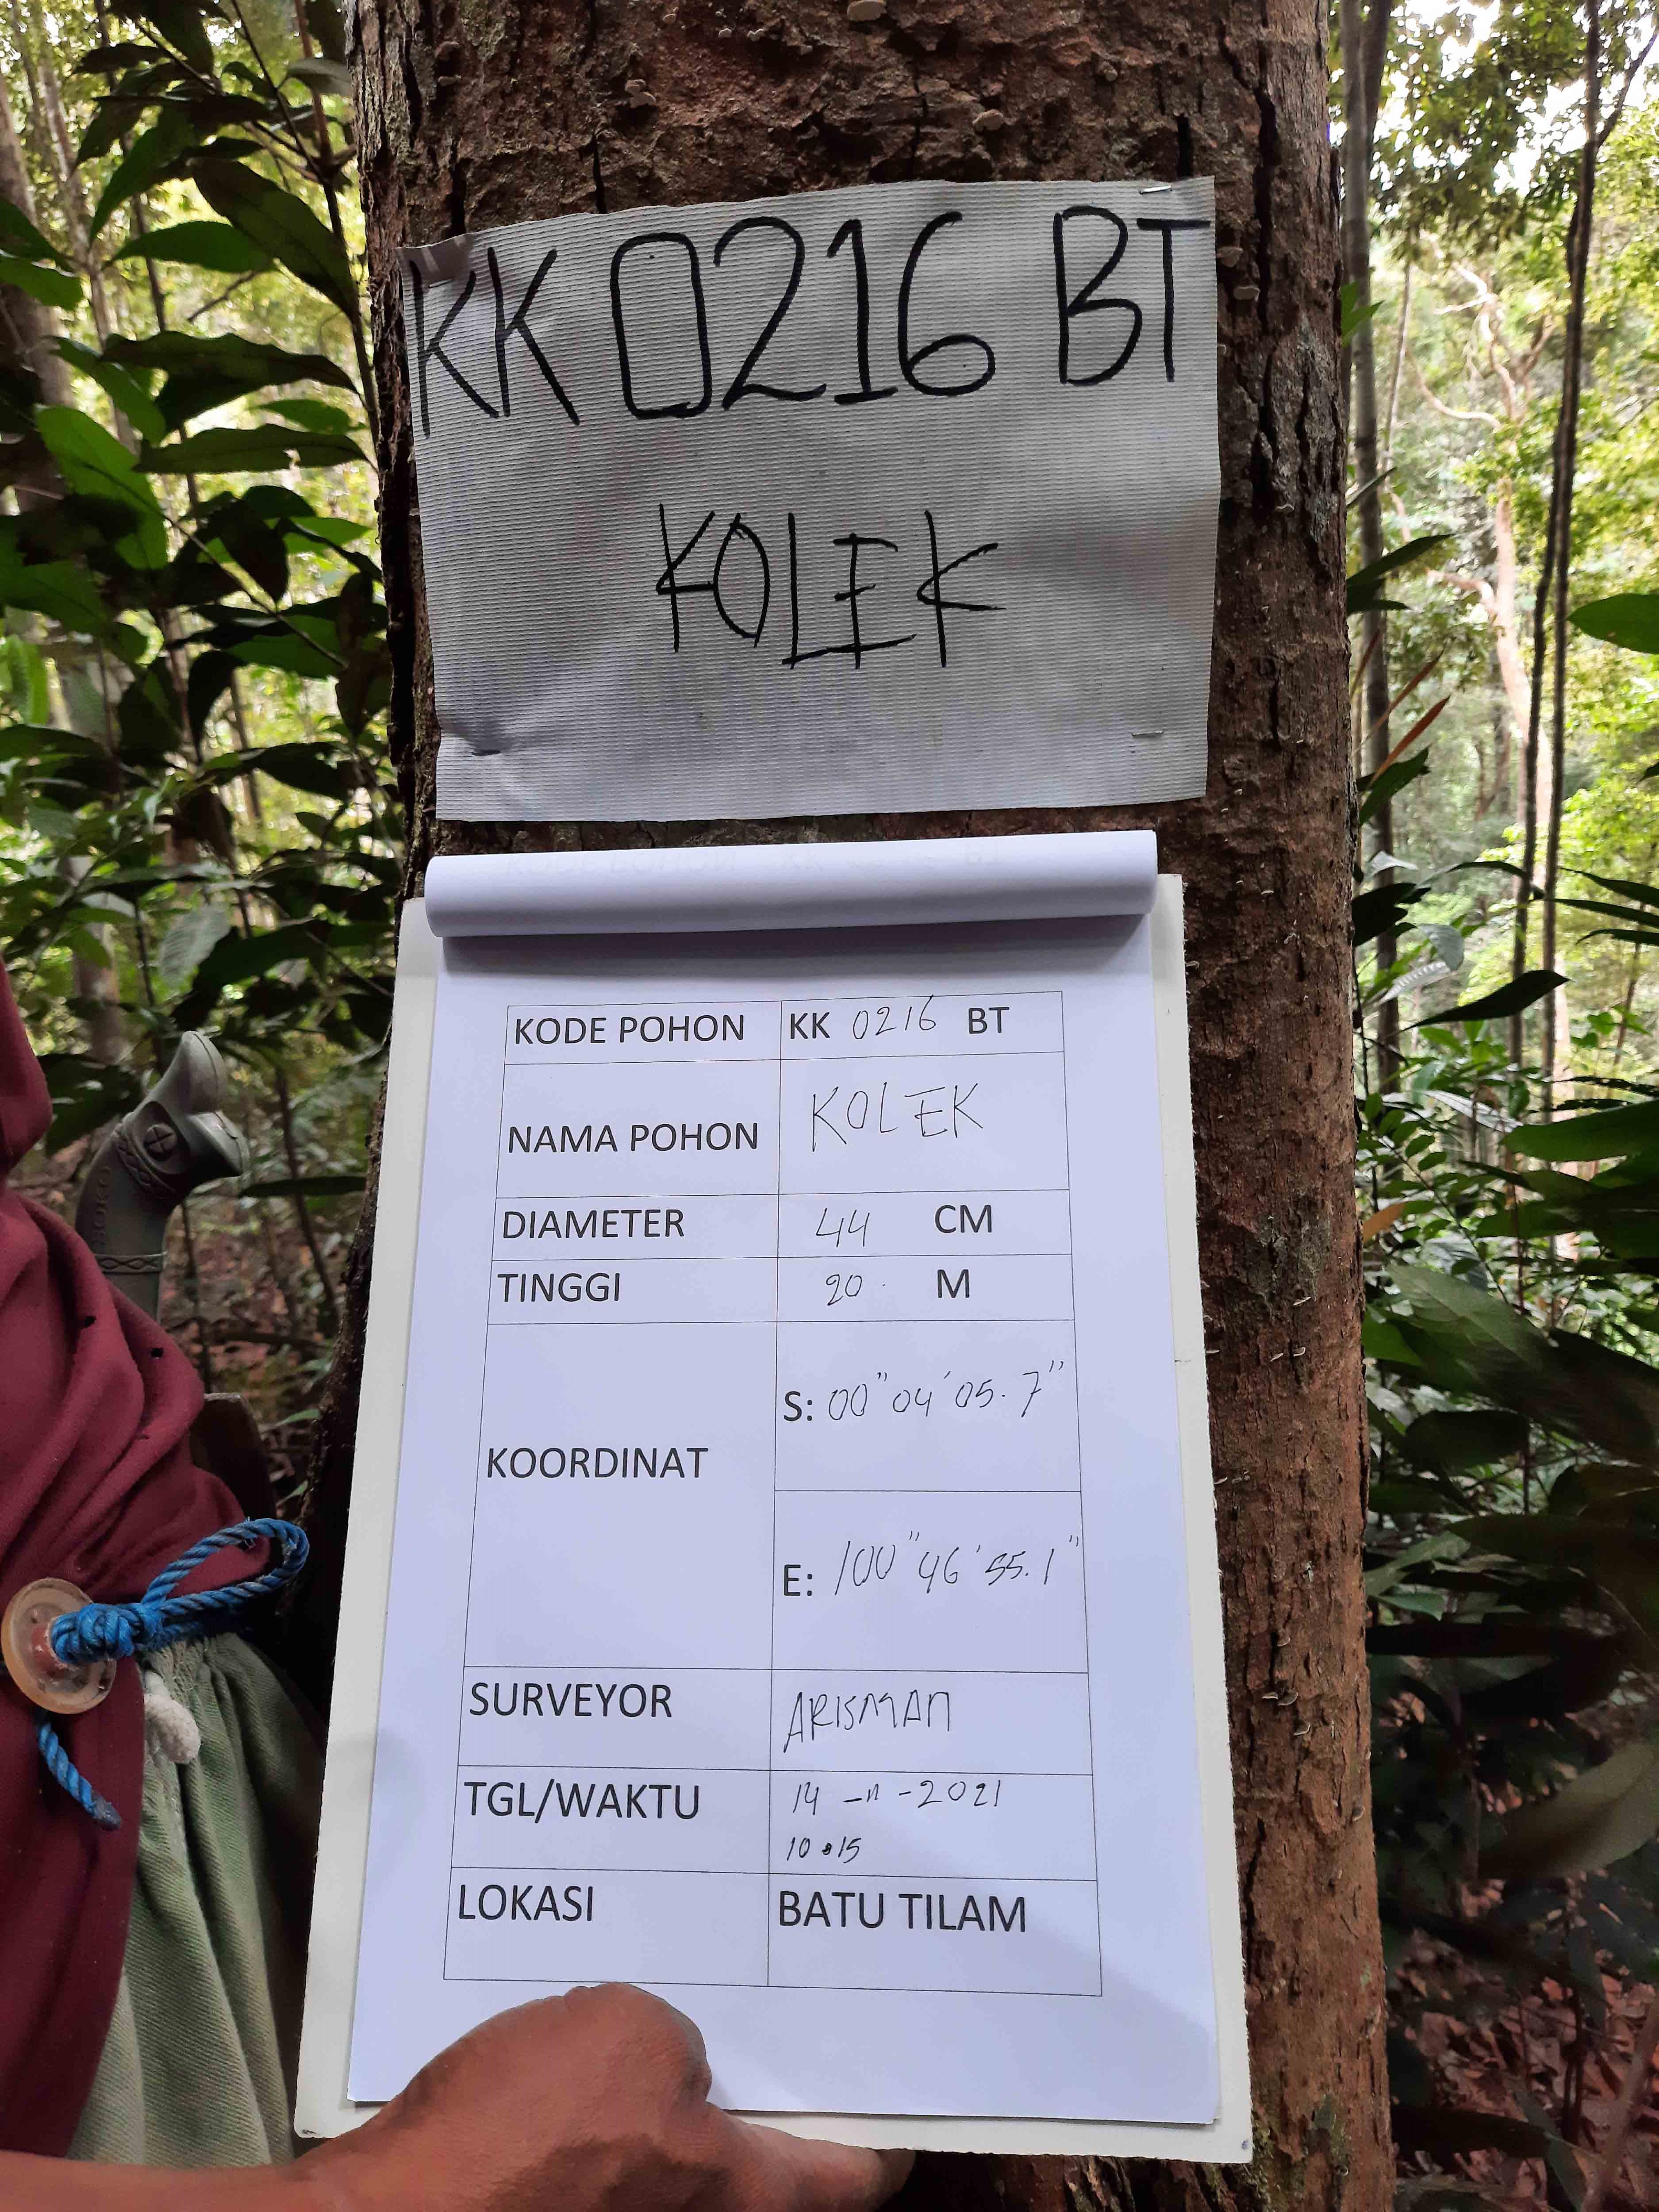 KK 0216 BT
KOLEK
KODE POHON KK 0216 BT
NAMA POHON KOLEK
DIAMETER 44 CM
TINGGI 20 M
KOORDINAT
S: 00" 04' 05.7"
E: 100" 46' 55.1"
SURVEYOR ARISMAN
TGL/WAKTU 14 -11 -2021
10.15
LOKASI BATU TILAM